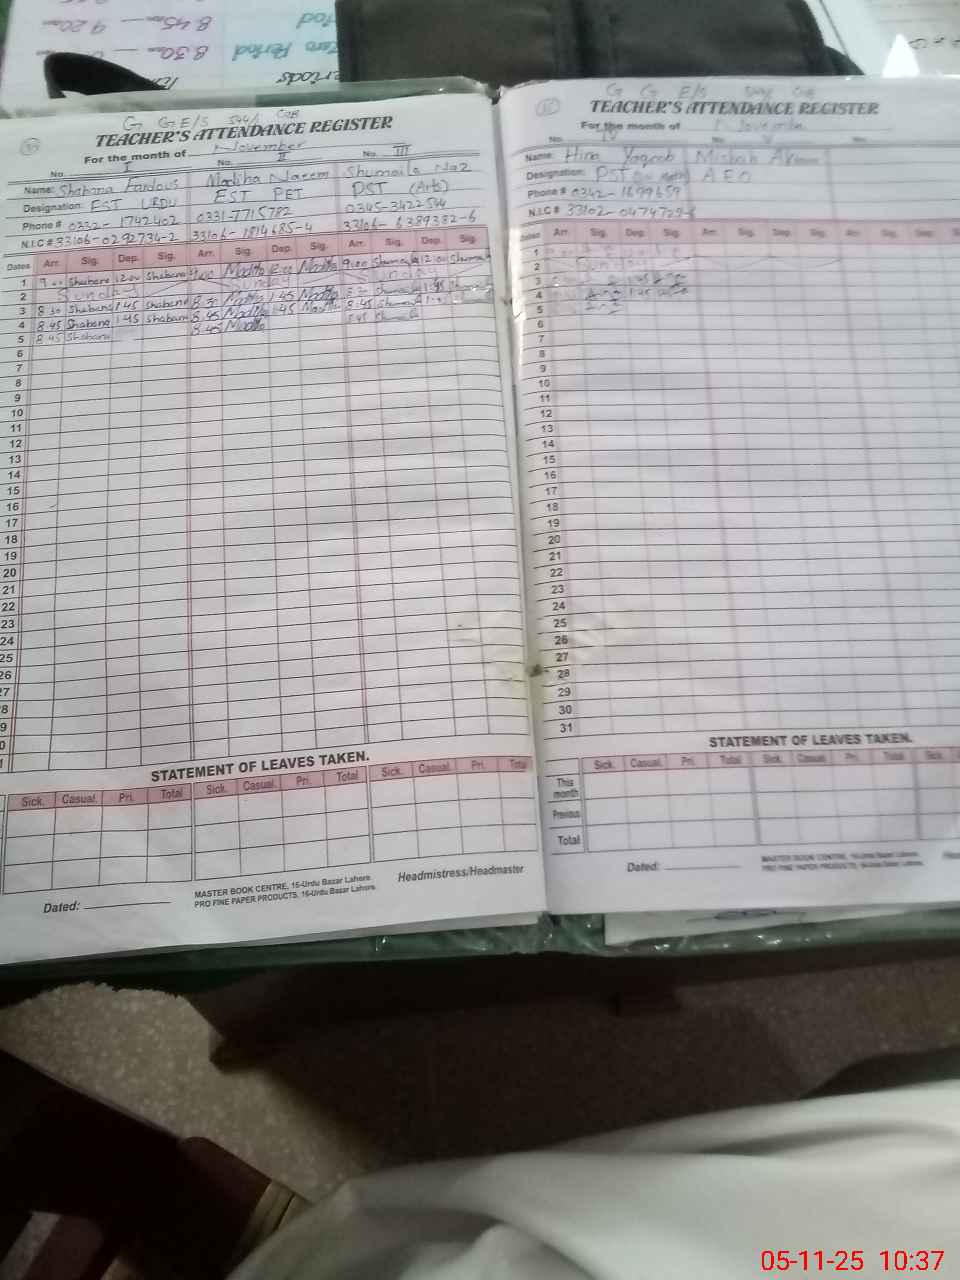 8.45am — 9.20am
Zero Period 8.30am —
G GE/S 544/ GB
TEACHER'S ATTENDANCE REGISTER
For the month of November
No. I No. II No. III
Name: Shabana Fardous Madiha Naeem Shumaila Naz
Designation: EST URDU EST PET PST (Arts)
Phone # 0332-1742402 0331-7715782 0345-3422544
N.I.C # 33106-0292734-2 33106-1814685-4 33106-6389382-6
Dates Arr. Sig. Dep. Sig. Arr. Sig. Dep. Sig. Arr. Sig. Dep. Sig.
1 9.00 Shabana 12.00 Shabana 9.00 Madiha 12.00 Madiha 9.00 Shumaila 12.00 Shumaila
2 Sunday Sunday Sunday
3 8.30 Shabana 1.45 Shabana 8.30 Madiha 1.45 Madiha 8.30 Shumaila 1.45 Shumaila
4 8.45 Shabana 1.45 Shabana 8.45 Madiha 1.45 Madiha 8.45 Shumaila
5 8.45 Shabana 8.45 Madiha 8.45 Shumaila
6
7
8
9
10
11
12
13
14
15
16
17
18
19
20
21
22
23
24
25
26
27
28
29
30
31
STATEMENT OF LEAVES TAKEN.
Sick. Casual. Pri. Total Sick. Casual. Pri. Total Sick. Casual. Pri. Total
Dated:
MASTER BOOK CENTRE, 16-Urdu Bazar Lahore.
PRO FINE PAPER PRODUCTS, 16-Urdu Bazar Lahore.
Headmistress/Headmaster
G G E/S 544/ GB
TEACHER'S ATTENDANCE REGISTER
For the month of November
No. IV No. V No.
Name: Hira Yaqoob Misbah Akram
Designation: PST AEO
Phone # 0342-1699659
N.I.C # 33102-0474729-8
Dates Arr. Sig. Dep. Sig. Arr. Sig. Dep. Sig. Arr. Sig. Dep.
1
2 Sunday
3 1.45
4 1.45
5
6
7
8
9
10
11
12
13
14
15
16
17
18
19
20
21
22
23
24
25
26
27
28
29
30
31
STATEMENT OF LEAVES TAKEN.
Sick. Casual. Pri. Total Sick. Casual. Pri. Total Sick.
This month
Previous
Total
Dated:
MASTER BOOK CENTRE, 16-Urdu Bazar Lahore.
PRO FINE PAPER PRODUCTS, 16-Urdu Bazar Lahore.
05-11-25 10:37